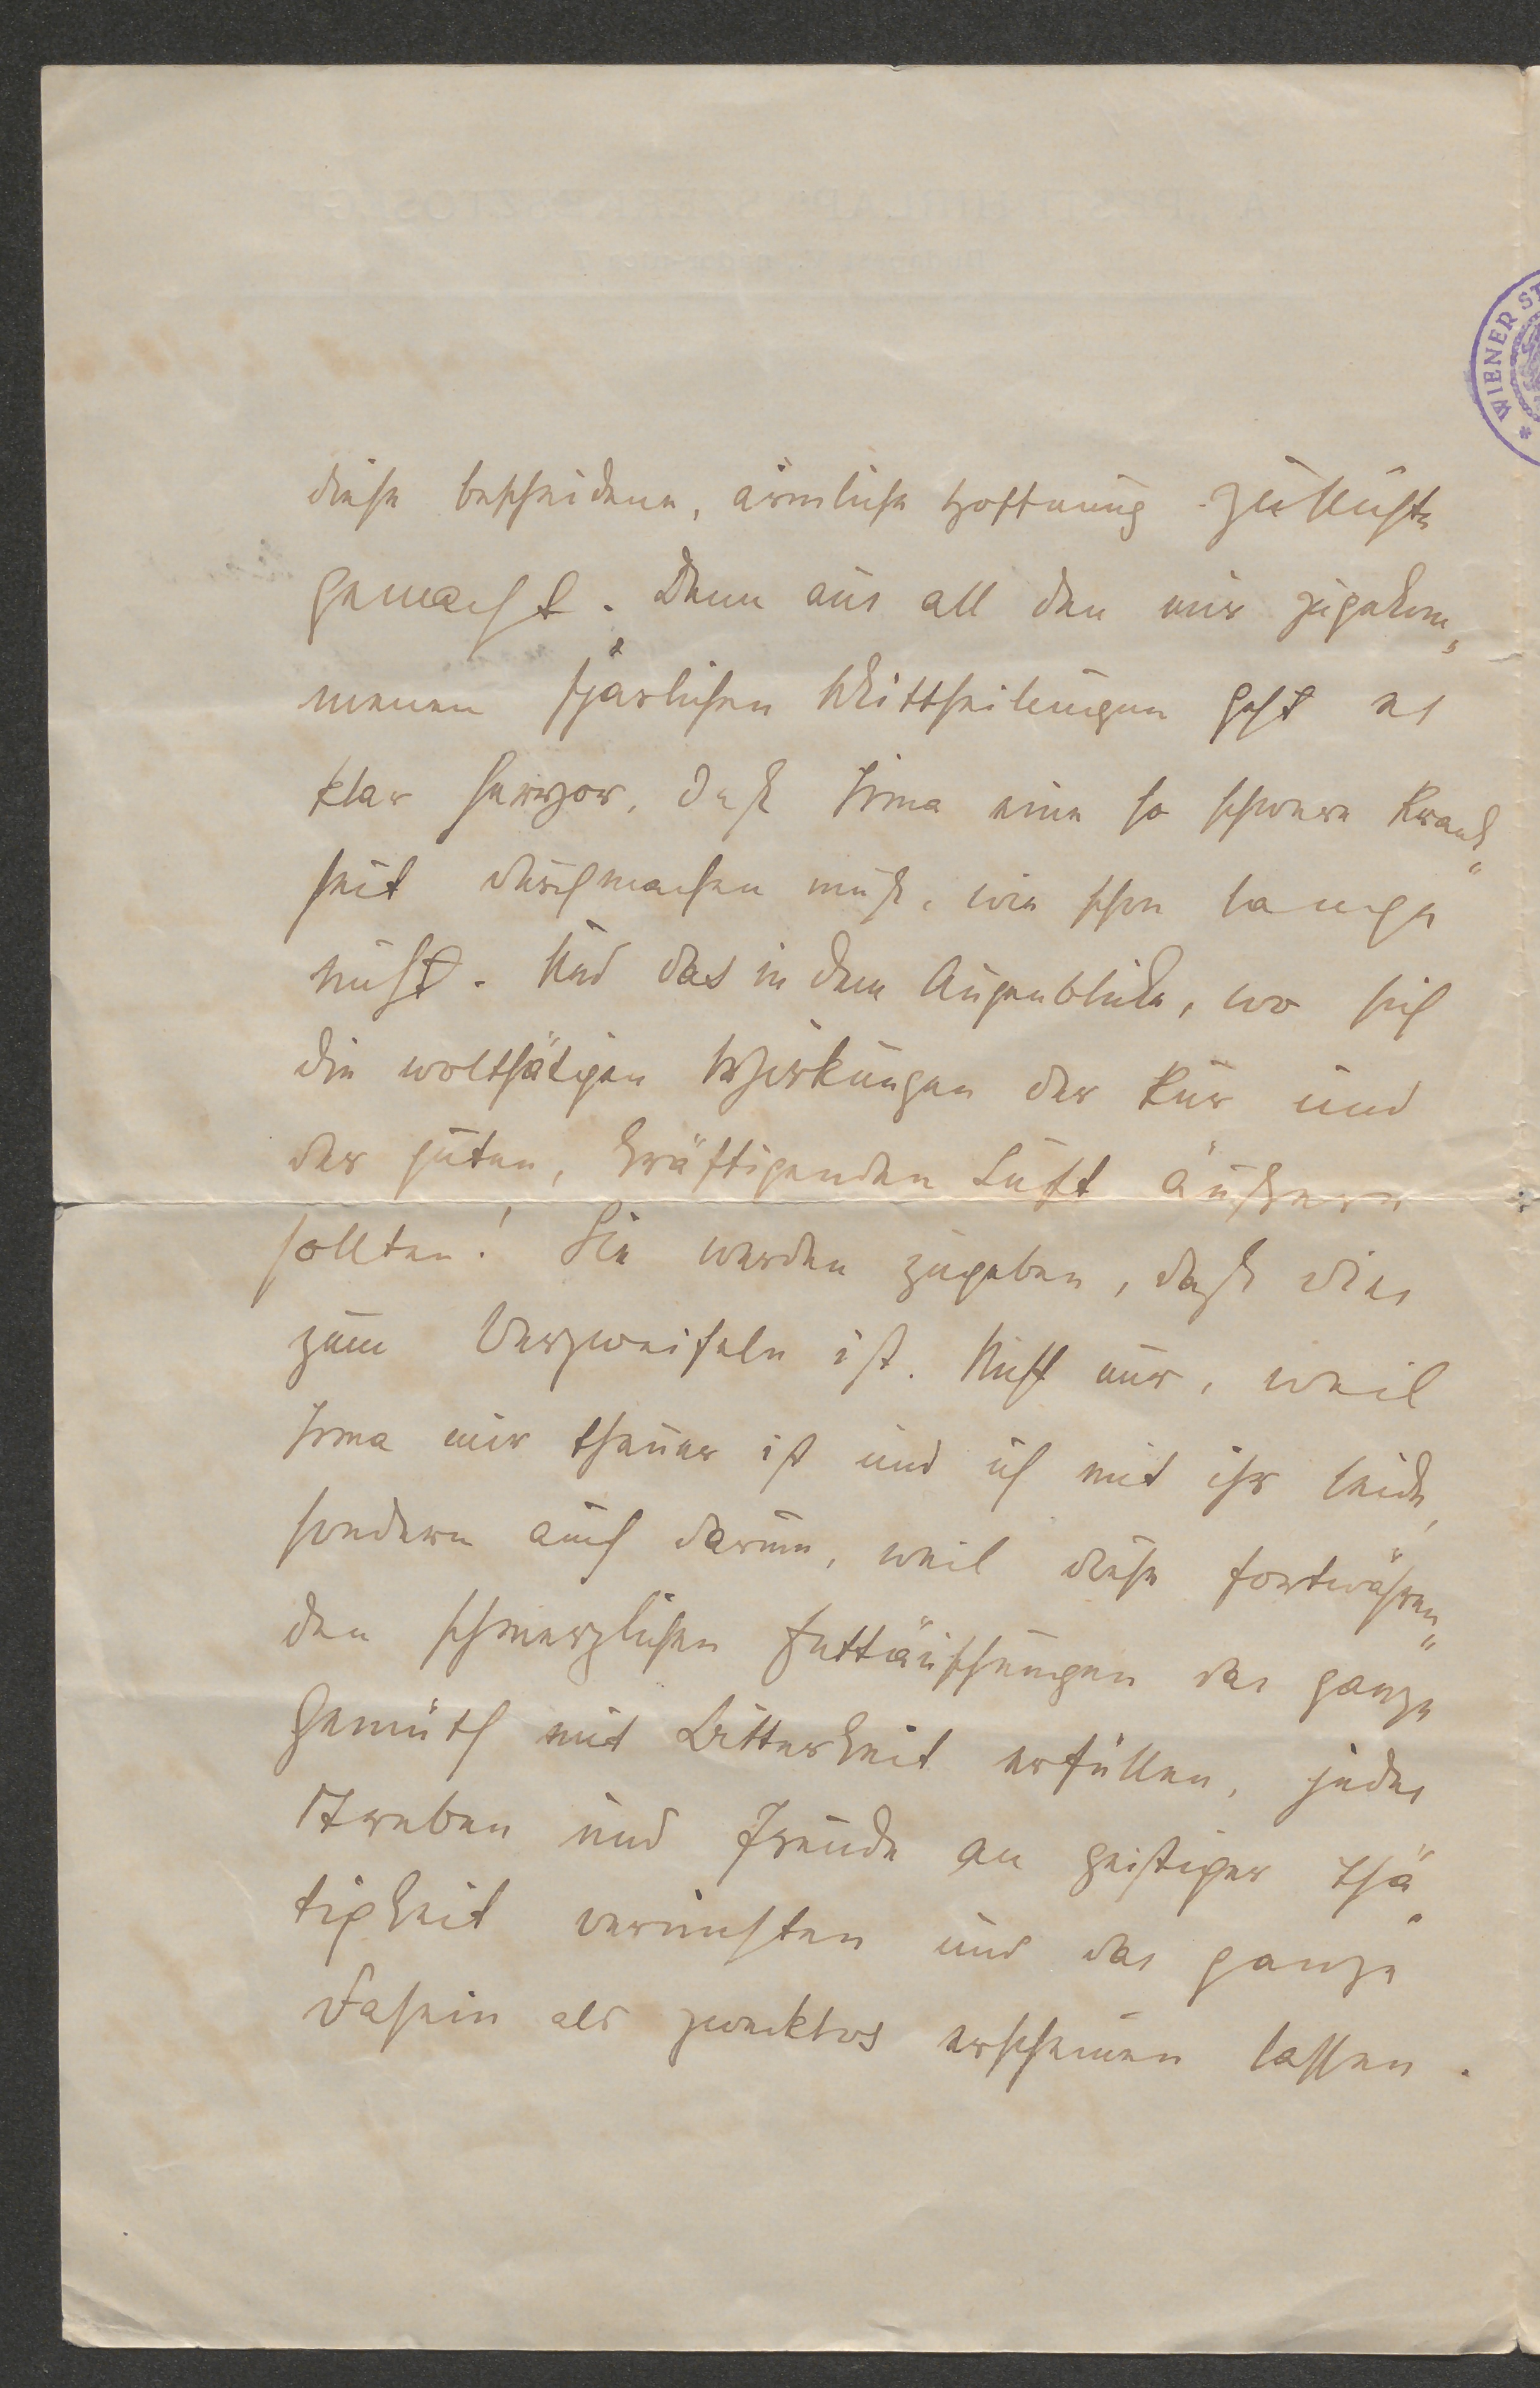 diese bescheidene, ärmliche Hoffnung zu nichte
gemacht. Denn aus all den mir zugekom„
menen spärlichen Mittheilungen geht es
klar hervor, daß Irma eine so schwere Krank„
heit durchmachen muß, wie schon lange
nicht. Und das in dem Augenblicke, wo sich
die wolthätigen Wirkungen der Kur und
der guten, kräftigenden Luft äußern
sollten! Sie werden zugeben, daß dies
zum Verzweifeln ist. Nicht nur, weil
Irma mir theuer ist und ich mit ihr leide,
sondern auch darum, weil diese fortwähren„
den schmerzlichen Enttäuschungen das ganze
Gemüth mit Bitterkeit erfüllen, jedes
Streben und Freude an geistiger Thä„
tigkeit vernichten und das ganze
Dasein als zwecklos erscheinen lassen.
* WIENER ST